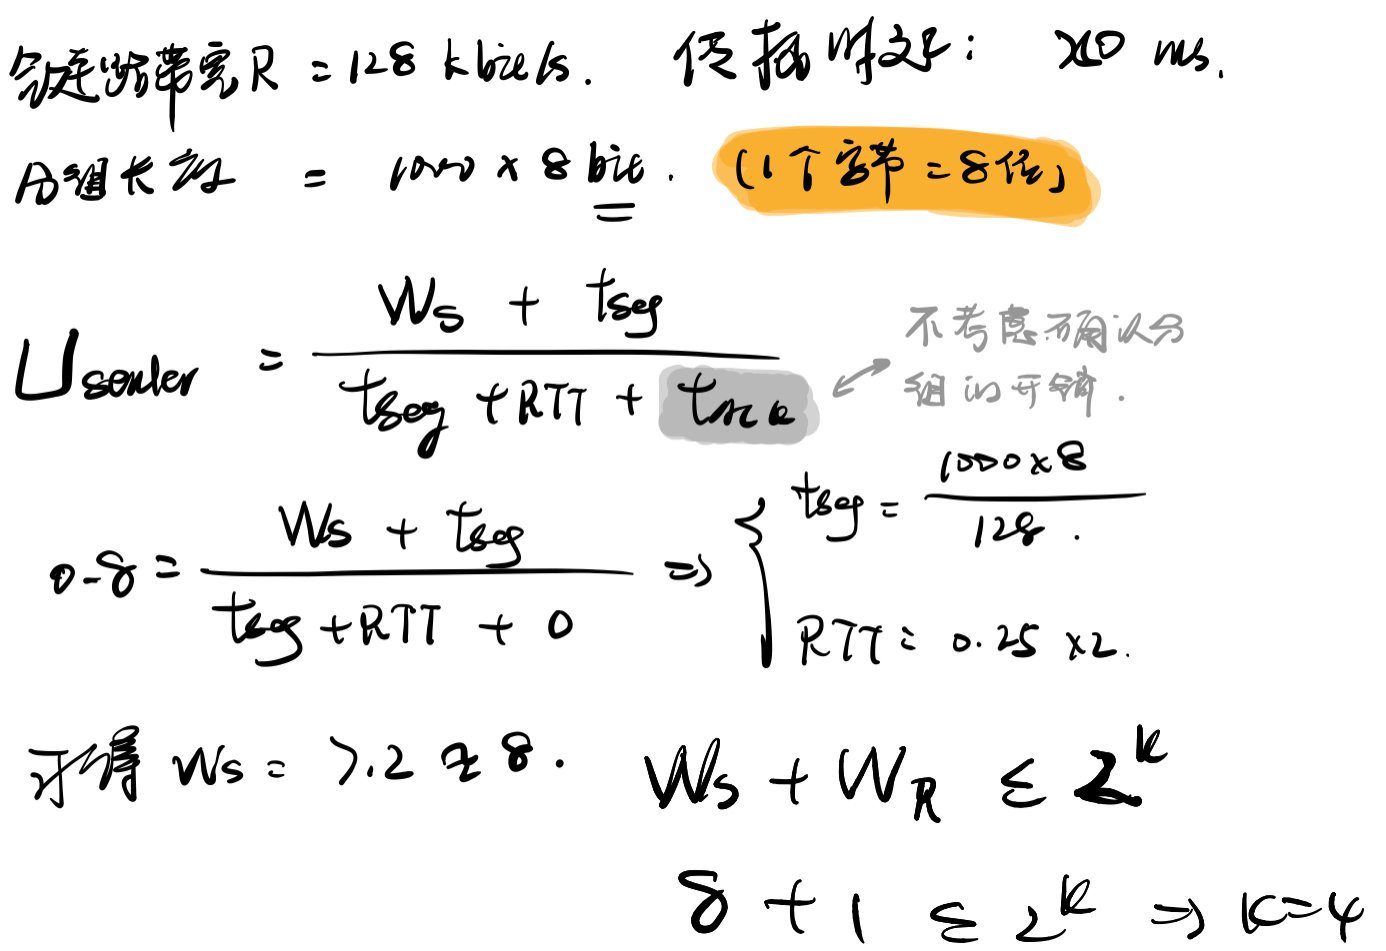 链路带宽R = 128 kbit/s. 传播时延: 250 ms.
分组长度 = 1000 × 8 bit. (1个字节=8位)
Usender = (Ws + tseg) / (tseg + RTT + tACK)
不考虑确认分
组的开销.
0.8 = (Ws + tseg) / (tseg + RTT + 0) ⇒ { tseg = (1000×8) / 128.
RTT = 0.25 ×2.
求得 Ws = 7.2 ≈ 8.
Ws + WR ≤ 2^k
8 + 1 ≤ 2^k ⇒ k=4